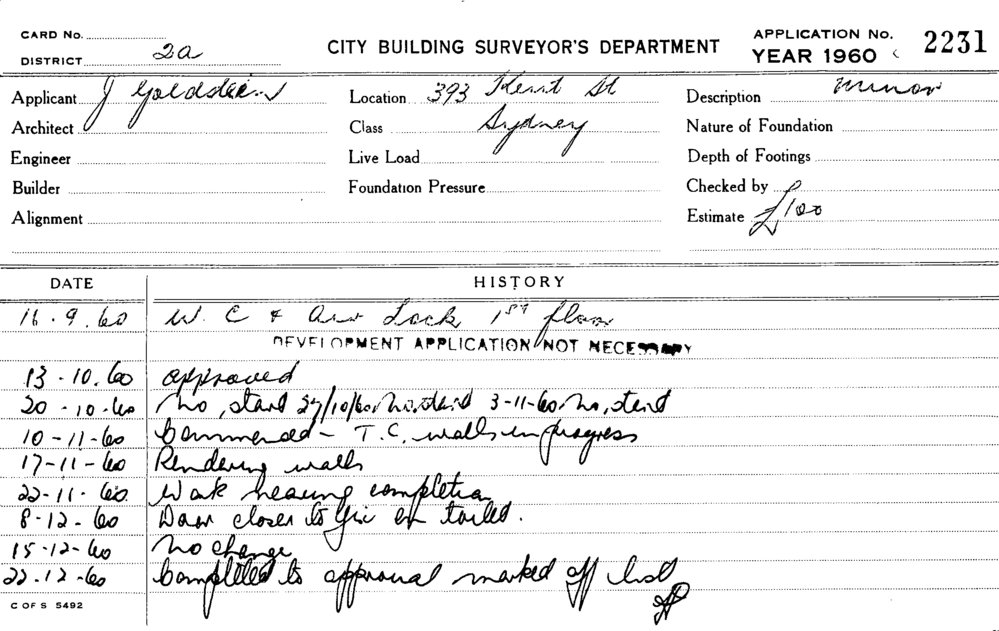 CARD No.
DISTRICT 2a
CITY BUILDING SURVEYOR'S DEPARTMENT
APPLICATION No. 2231
YEAR 1960
Applicant J Goldstein
Location 393 Kent St
Description minor
Architect
Class Sydney
Nature of Foundation
Engineer
Live Load
Depth of Footings
Builder
Foundation Pressure
Checked by
Alignment
Estimate £100
DATE HISTORY
16.9.60 W.C & Air Lock 1st floor
DEVELOPMENT APPLICATION NOT NECESSARY
13-10.60 approved
20-10-60 No, start 27/10/60, No, start 3-11-60, No, start
10-11-60 Commenced - T.C. walls in progress
17-11-60 Rendering walls
22-11-60 Work nearing completion
8-12-60 Door closer to fix on toilet.
15-12-60 No change
22.12-60 Completed to approval marked off list
C OF S 5492